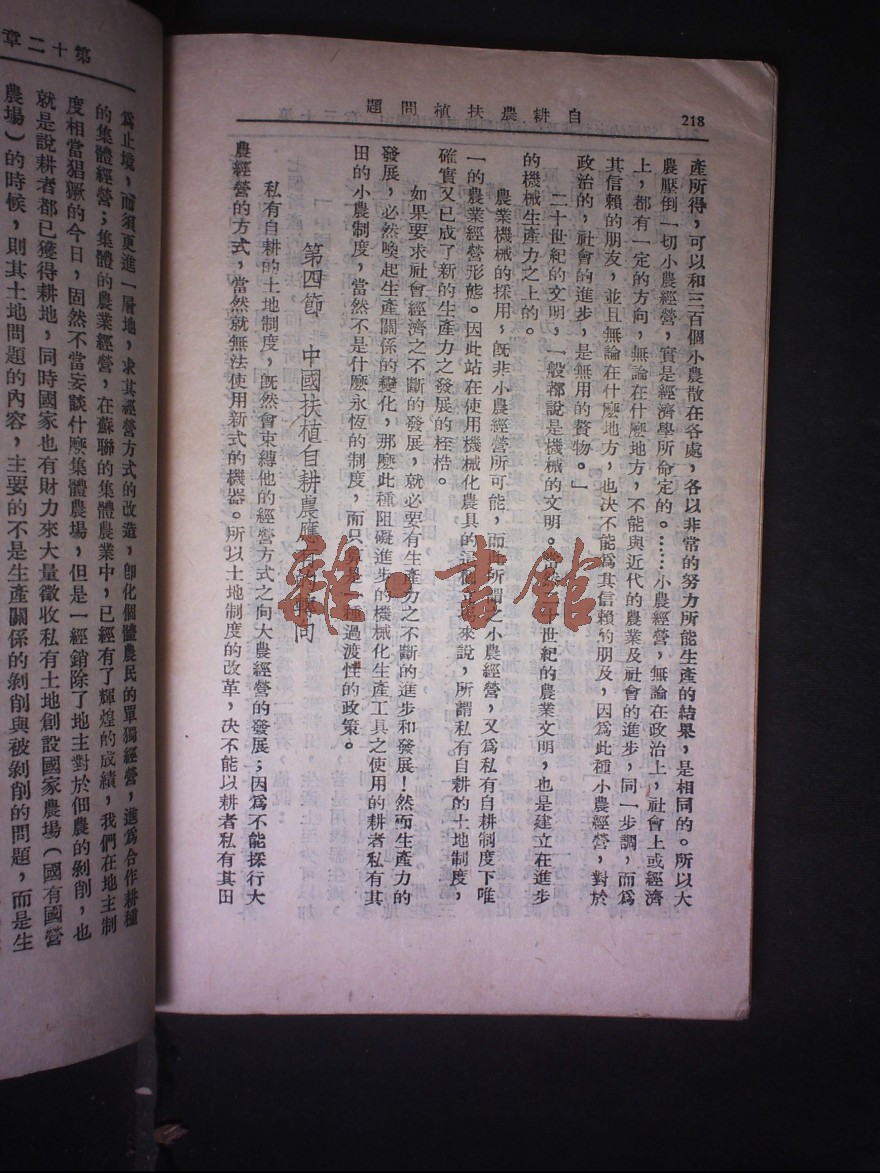 自耕農扶植問題
218
產所得，可以和三百個小農散在各處，各以非常的努力所能生產的結果，是相同的。所以大
農壓倒一切小農經營，實是經濟學所命定的。……小農經營，無論在政治上，社會上或經濟
上，都有一定的方向，無論在什麼地方，不能與近代的農業及社會的進步，同一步調，而爲
其信賴的朋友，並且無論在什麼地方，也決不能爲其信賴的朋友，因爲此種小農經營，對於
政治的，社會的進步，是無用的贅物。」
二十世紀的文明，一般都說是機械的文明。當 十世紀的農業文明，也是建立在進步
的機械生產力之上的。
農業機械的採用，既非小農經營所可能，而此所謂之小農經營，又爲私有自耕制度下唯
一的農業經營形態。因此站在使用機械化農具的 來說，所謂私有自耕的土地制度，
確實又已成了新的生產力之發展的桎梏。
如果要求社會經濟之不斷的發展，就必要有生產力之不斷的進步和發展！然而生產力的
發展，必然喚起生產關係的變化，那麼此種阻礙進步的機械化生產工具之使用的耕者私有其
田的小農制度，當然不是什麼永恆的制度，而只算是 種過渡性的政策。
第四節 中國扶植自耕農應 轉向
私有自耕的土地制度，既然會束縛他的經營方式之向大農經營的發展；因爲不能採行大
農經營的方式，當然就無法使用新式的機器。所以土地制度的改革，決不能以耕者私有其田
第十二章
爲止境，而須更進一層地，求其經營方式的改造，卽化個體農民的單獨經營，進爲合作耕種
的集體經營；集體的農業經營，在蘇聯的集體農業中，已經有了輝煌的成績，我們在地主制
度相當猖獗的今日，固然不當妄談什麼集體農場，但是一經銷除了地主對於佃農的剝削，也
就是說耕者都已獲得耕地，同時國家也有財力來大量徵收私有土地創設國家農場（國有國營
農場）的時候，則其土地問題的內容，主要的不是生產關係的剝削與被剝削的問題，而是生
雜·書館